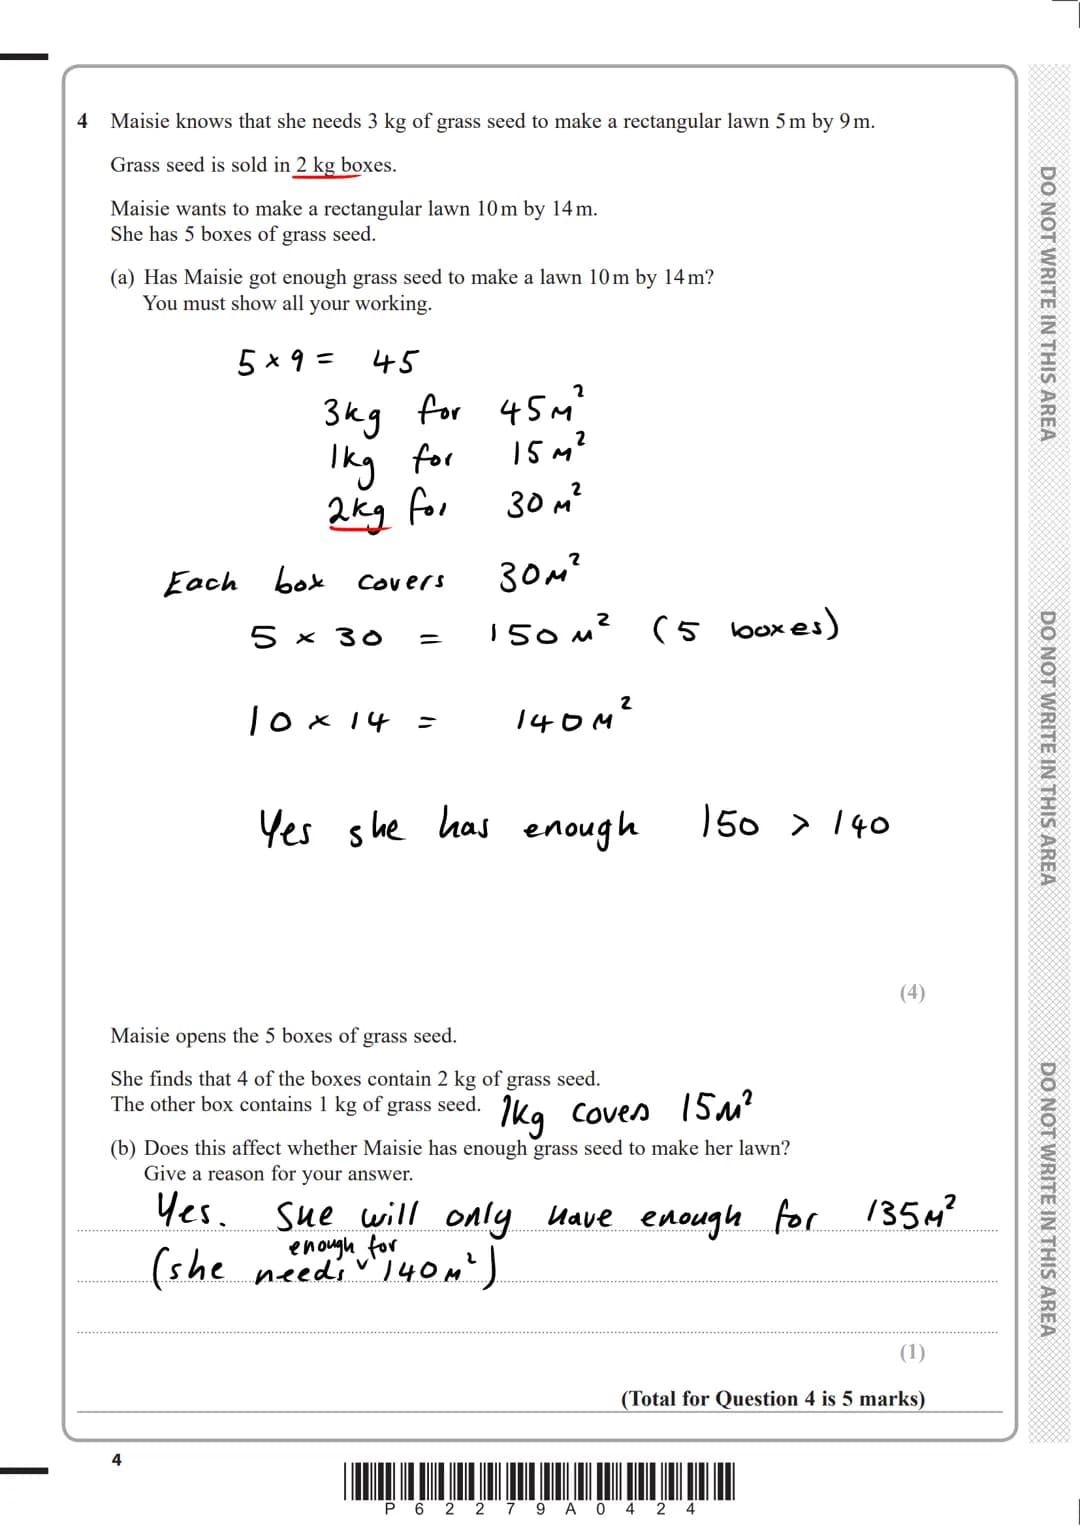 4 Maisie knows that she needs 3 kg of grass seed to make a rectangular lawn 5 m by 9 m.
Grass seed is sold in 2 kg boxes.
Maisie wants to make a rectangular lawn 10 m by 14 m.
She has 5 boxes of grass seed.
(a) Has Maisie got enough grass seed to make a lawn 10 m by 14 m?
You must show all your working.
5 × 9 = 45
3kg for 45 m²
1kg for 15 m²
2kg for 30 m²
Each box covers 30m²
5 × 30 = 150 m² (5 boxes)
10 × 14 = 140 m²
Yes she has enough 150 > 140
(4)
Maisie opens the 5 boxes of grass seed.
She finds that 4 of the boxes contain 2 kg of grass seed.
The other box contains 1 kg of grass seed.
1kg covers 15m²
(b) Does this affect whether Maisie has enough grass seed to make her lawn?
Give a reason for your answer.
Yes. She will only have enough for 135m²
(she needs enough for 140m²)
(1)
(Total for Question 4 is 5 marks)
4
P 6 2 2 7 9 A 0 4 2 4
DO NOT WRITE IN THIS AREA
DO NOT WRITE IN THIS AREA
DO NOT WRITE IN THIS AREA